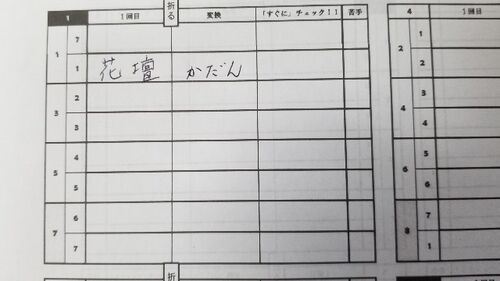 折る
1 1回目 変換 「すぐに」チェック！！ 苦手
1 7
1 花壇 かだん
3 2
3
5 4
5
7 6
7
4 1回目
2 1
2
4 3
4
6 5
6
8 7
1
折